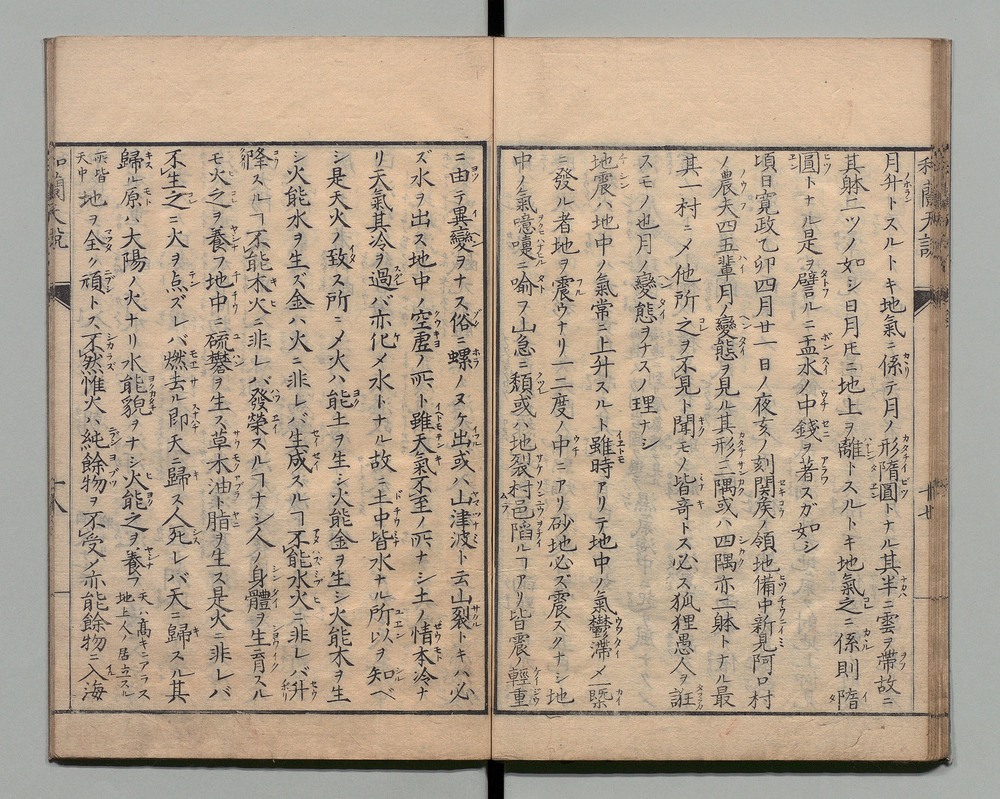 月升トスルトキ地氣ニ係テ月ノ形隋圓トナル其半ニ雲ヲ帶故ニ
其躰二ツノ如シ日月㞮ニ地上ヲ離トスルトキ地氣之ニ係則隋
圓トナル是ヲ譬ルニ盂水ノ中錢ヲ著スガ如シ
頃日寛政乙卯四月廿一日ノ夜亥ノ刻関侯ノ領地備中新見阿口村
ノ農夫四五輩月ノ變態ヲ見ル其形三隅或ハ四隅亦二躰トナル最
其一村ニメ他所之ヲ不見ト聞モノ皆奇トス必ス狐狸愚人ヲ誑
スモノ也月ノ變態ヲナスノ理ナシ
地震ハ地中ノ氣常ニ上升スルト雖時アリテ地中ノ氣鬱滯メ一既
ニ發ル者地ヲ震ウナリ一二度ノ中ニアリ砂地必ズ震スクナシ地
中ノ氣噫嚏ニ喻フ山急ニ頽或ハ地裂村邑陷ルヿアリ皆震ノ輕重
ニ由テ異變ヲナス俗ニ螺ノヌケ出或ハ山津波ト云山裂トキハ必
ズ水ヲ出ス地中ノ空虛ノ所ト雖天氣不至ノ所ナシ土ノ情本冷ナ
リ天氣其冷ヲ過バ亦化メ水トナル故ニ土中皆水ナル所以ヲ知ベ
シ是天火ノ致ス所ニメ火ハ能土ヲ生シ火能金ヲ生シ火能木ヲ生
シ火能水ヲ生ズ金ハ火ニ非レバ生成スルヿ不能水火ニ非レバ升
降スルヿ不能木火ニ非レバ發榮スルヿナシ人ノ身體ヲ生育スル
モ火之ヲ養フ地中ニ硫礬ヲ生ス草木油ト脂ヲ生ス是火ニ非レバ
不生之ニ火ヲ点ズレバ燃去ル即天ニ歸ス人死レバ天ニ歸スル其
歸ル原ハ大陽ノ火ナリ水能貌ヲナシ火能之ヲ養フ天ハ髙キニアラス地上人ノ居立スル
所皆天中地ヲ全ク頑トス不然惟火ハ純餘物ヲ不受メ亦能餘物ニ入海